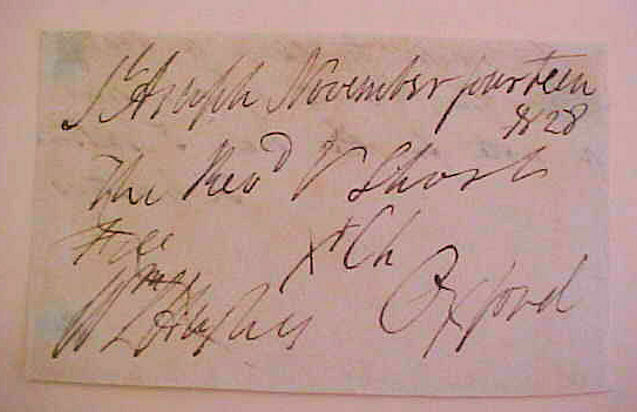 St Asaph November fourteen
1828
The Revd V Short
Free
Xt Ch
Oxford